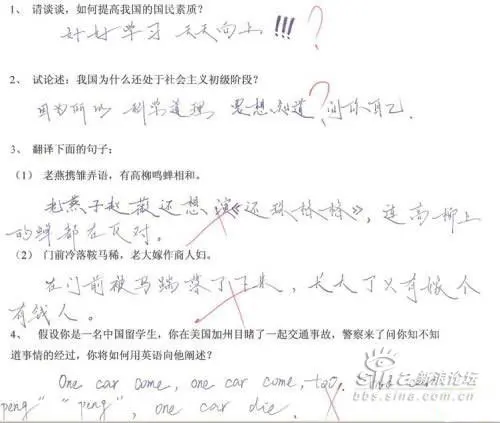 1、 请谈谈，如何提高我国的国民素质？
好好学习 天天向上!!! ?
2、 试论述：我国为什么还处于社会主义初级阶段？
因为所以 科学道理 思想知道 ? 问你自己.
3、 翻译下面的句子：
（1） 老燕携雏弄语，有高柳鸣蝉相和。
老燕子赵薇还想演《还珠格格》，连高柳上
的蝉都在反对。
（2） 门前冷落鞍马稀，老大嫁作商人妇。
在门前被马踹落了下来，长大了又有嫁个
有钱人。
4、 假设你是一名中国留学生，你在美国加州目睹了一起交通事故，警察来了问你知不知
道事情的经过，你将如何用英语向他阐述？
One car come, one car come, two car
"peng" "peng", one car die.
sina 新浪论坛
bbs.sina.com.cn